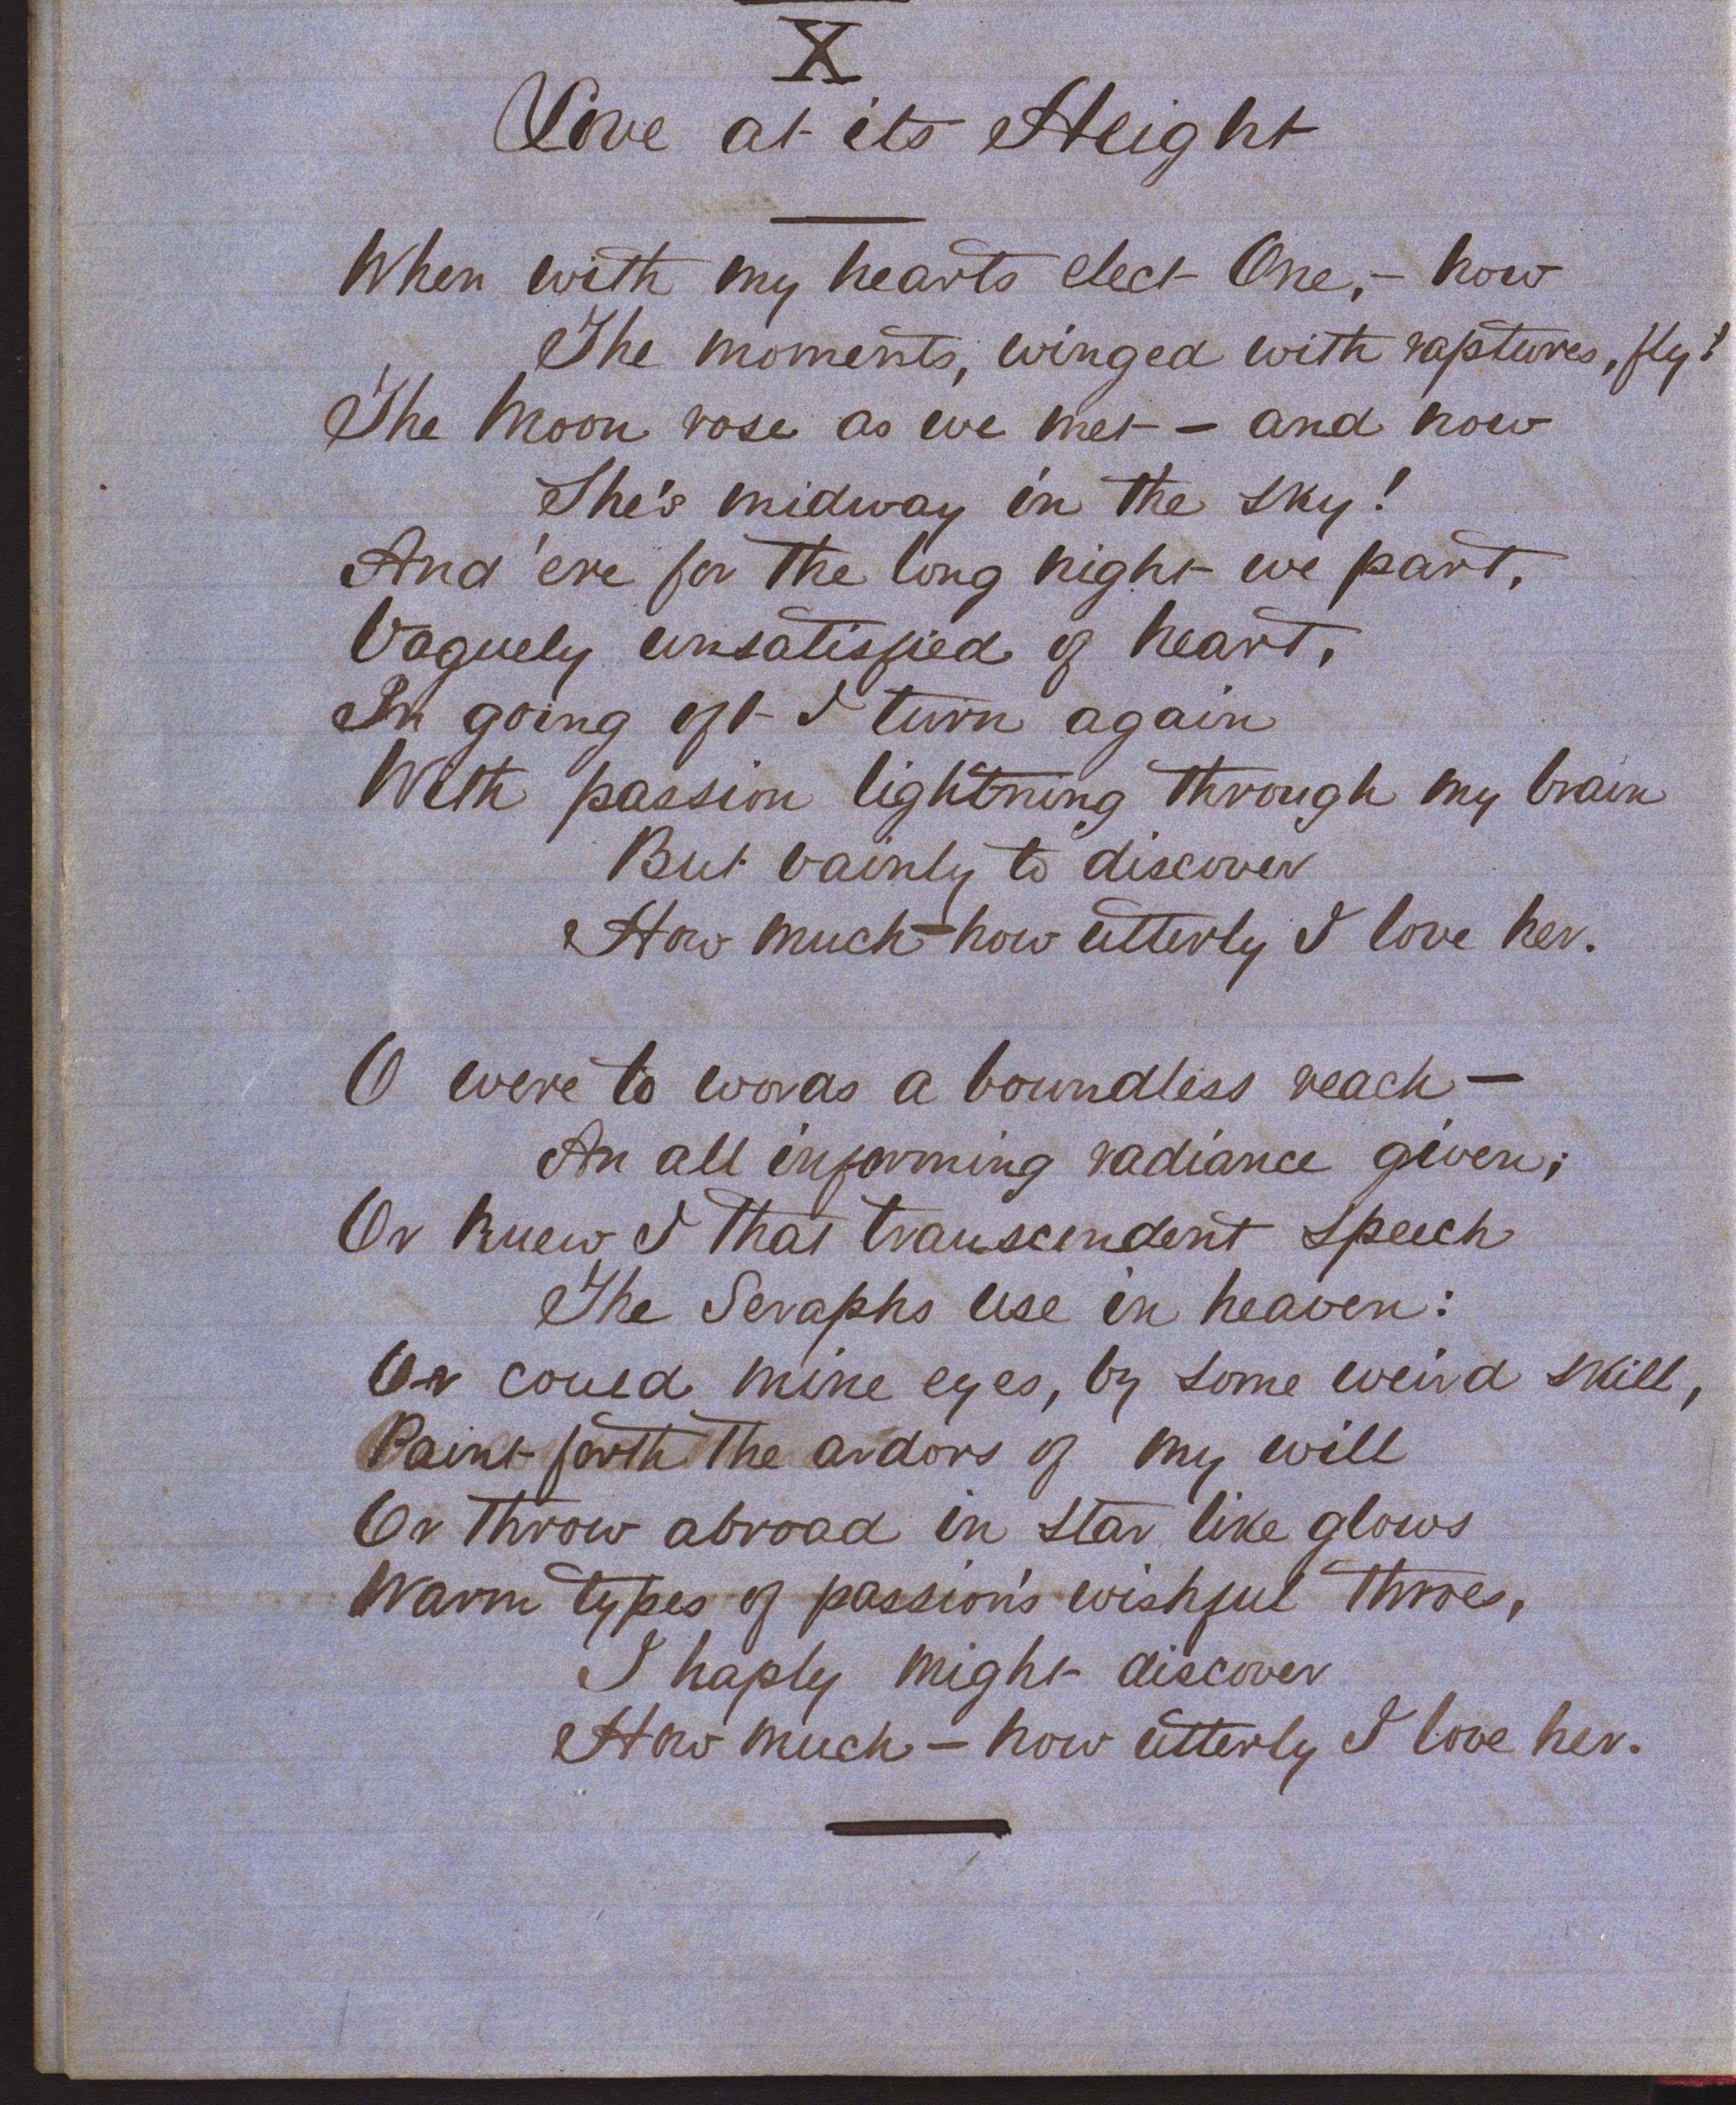 X
Love at its Height
When with my hearts elect One, – how
The moments, winged with raptures, fly!
The Moon rose as we met – and now
She's midway in the sky!
And 'ere for the long night we part,
Vaguely unsatisfied of heart,
In going oft I turn again
With passion lightning through my brain
But vainly to discover
How much – how utterly I love her.
O were to words a boundless reach –
An all informing radiance given;
Or knew I that transcendent speech
The Seraphs use in heaven:
Or could mine eyes, by some weird skill,
Paint forth the ardors of my will
Or throw abroad in star like glows
Warm types of passion's wishful throes,
I haply might discover
How much – how utterly I love her.